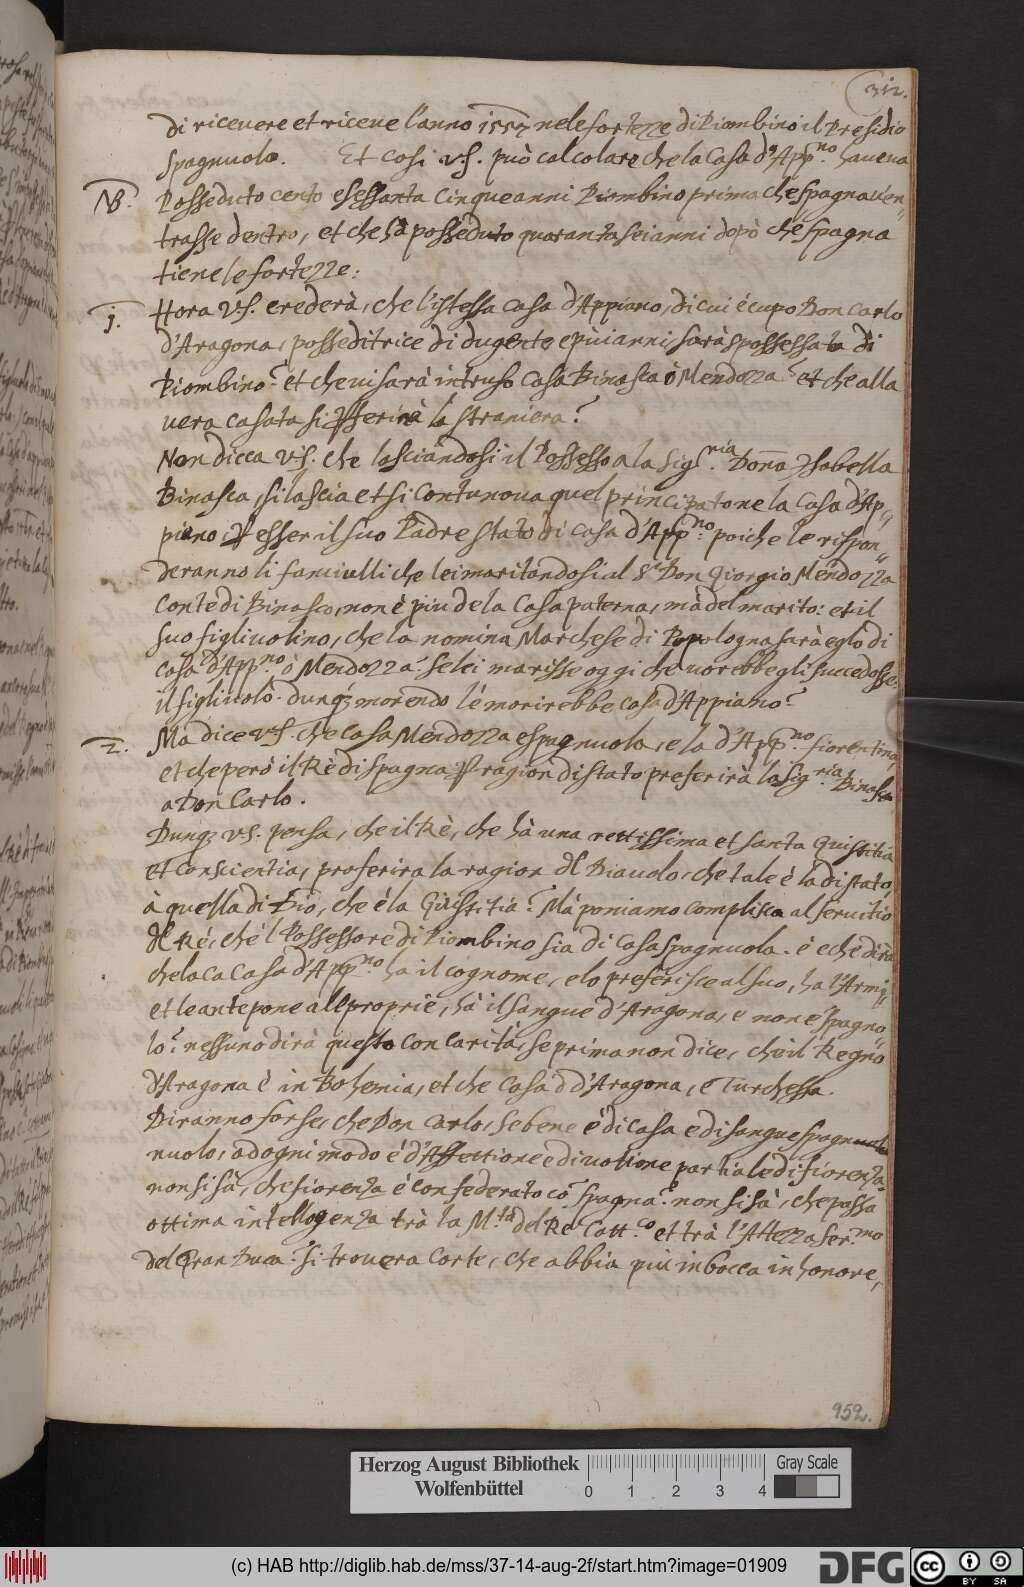 312.
di riceuere et riceue l'anno 1557 nele fortezze di Piombino il Presidio
spagnuolo. Et cosi v.s. può calcolare che la Casa d'App.no haueua
NB. Posseduto cento e sessanta cinque anni Piombino prima che spagna v'en-
trasse dentro, et che hà posseduto quaranta sei anni dopò che spagna
tiene le fortezze:
1. Hora v.s. crederà, che l'istessa casa d'Appiano, di cui è capo Don Carlo
d'Aragona, posseditrice di dugento e più anni sarà spossessata di
Piombino? et che vi sarà intruso casa Binasca ò Mendozza? et che alla
vera casata si pferirà la straniera?
Non dicca v.s. che lasciandosi il Possesso a la Sig.ria Donna Isabella
Binasca, si lascia et si Contunoua quel principato ne la Casa d'Ap-
piano, p esser il suo Padre stato di casa d'App.no poiche le rispon-
deranno li fanciulli che lei maritandosi al S.r Don Giorgio Mendozza
Conte di Binasco, non è piu de la Casa paterna, mà del marito: et il
suo figliuolino, che la nomina Marchese di Populogna sarà eglo di
casa d'App.no ò Mendozza? se lei morisse oggi che vorebbe gli succedesse
il figliuolo. dunq; morendo lé morirebbe casa d'Appiano?
2. Mà dice v.s. che casa Mendozza e spagnuola, e la d'App.no fiorentina,
et che però il Rè di spagna p ragion di stato preferirà la Sig.ria Binasca
a Don Carlo.
Dunq; v.s. pensa, che il Rè, che hà una rettissima et santa Giustitia
et Conscientia, preferira la ragion dl Diauolo, che tale è la di stato,
à quella di Dio, che é la Giustitia? Mà poniamo complisca al seruitio
dl Ré, ché l Possessore di Piombino sia di Casa spagnuola. è eche dirà
che la ca Casa d'App.no ha il cognome, e lo preferisce al suo, ha l'Armi,
et le antepone all proprie, hà il sangue d'Aragona, e non è spagno-
lo? nessuno dirà questo con carità, se prima non dice, che il Regno
d'Aragona è in Bohemia, et che Casa d d'Aragona, è Turchessa.
Diranno forse, che Don Carlo, se bene é di casa e di sangue spagnuolo
nuolo, ad ogni modo é d'Affettione e diuotione partiale di fiorenza
non si sà, che fiorenza é confederato cõ spagna? non si sà, che passa
ottima intellogenza trà la M.tà del Rè Catt.co et trà l'Altezza Ser.mo
del Gran Duca? Si trouera Corte, che abbia piu in bocca in honore,
952.
Herzog August Bibliothek
Wolfenbüttel
0 1 2 3 4
Gray Scale
(c) HAB http://diglib.hab.de/mss/37-14-aug-2f/start.htm?image=01909
DFG
cc BY SA